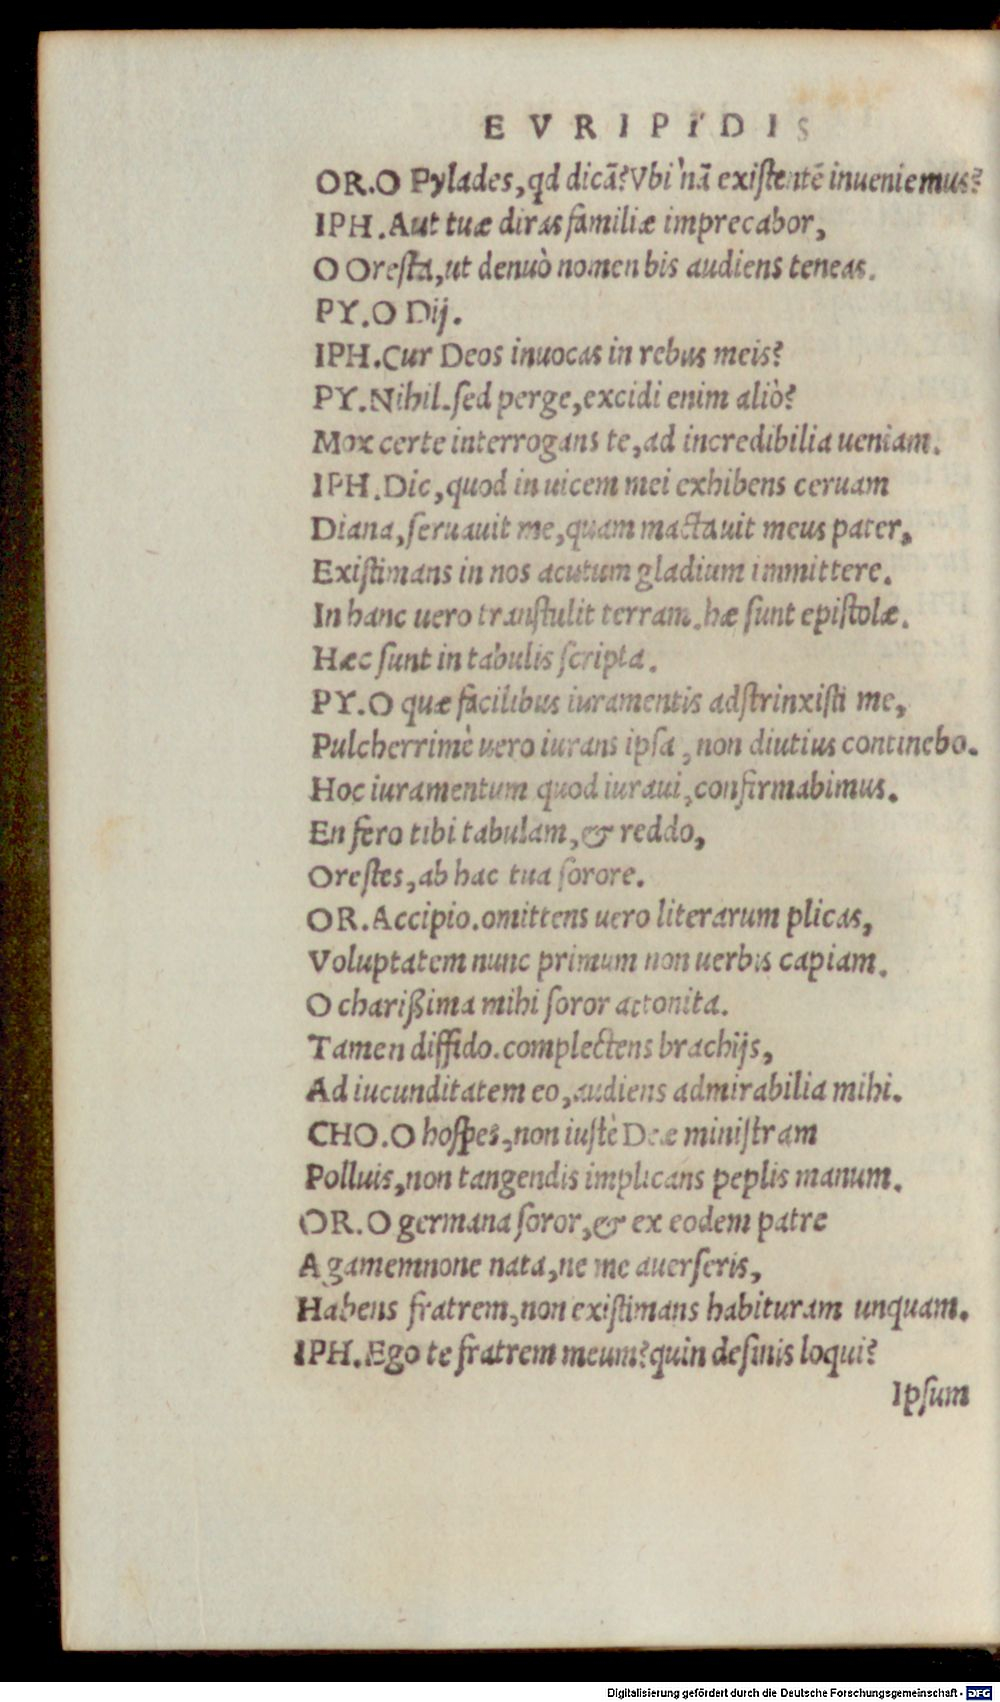 EVRIPIDIS
OR.O Pylades, qd dicā? Vbi'nā existentē inueniemus?
IPH. Aut tuæ diras familiæ imprecabor,
O Oresta, ut denuò nomen bis audiens teneas.
PY.O Dij.
IPH. Cur Deos inuocas in rebus meis?
PY. Nihil. sed perge, excidi enim aliò?
Mox certe interrogans te, ad incredibilia ueniam.
IPH. Dic, quod in uicem mei exhibens ceruam
Diana, seruauit me, quam mactauit meus pater,
Existimans in nos acutum gladium immittere.
In hanc uero transtulit terram. hæ sunt epistolæ.
Hæc sunt in tabulis scripta.
PY.O quæ facilibus iuramentis adstrinxisti me,
Pulcherrimè uero iurans ipsa, non diutius continebo.
Hoc iuramentum quod iuraui, confirmabimus.
En fero tibi tabulam, & reddo,
Orestes, ab hac tua sorore.
OR. Accipio. omittens uero literarum plicas,
Voluptatem nunc primum non uerbis capiam.
O charißima mihi soror attonita.
Tamen diffido. complectens brachijs,
Ad iucunditatem eo, audiens admirabilia mihi.
CHO.O hospes, non iustè Deæ ministram
Polluis, non tangendis implicans peplis manum.
OR.O germana soror, & ex eodem patre
Agamemnone nata, ne me auerseris,
Habens fratrem, non existimans habituram unquam.
IPH. Ego te fratrem meum? quin desinis loqui?
Ipsum
Digitalisierung gefördert durch die Deutsche Forschungsgemeinschaft - DFG